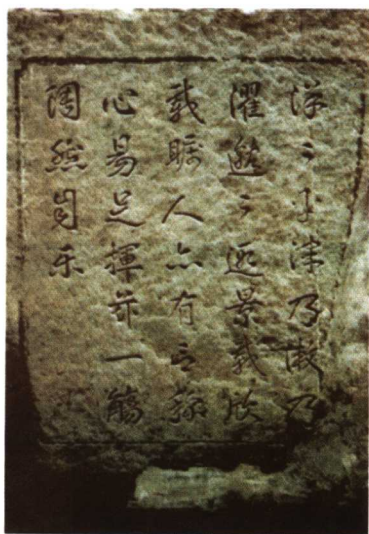 洋〻平津乃漱乃
濯邈〻遐景載欣
載矚人亦有言稱
心易足揮茲一觴
陶然自樂